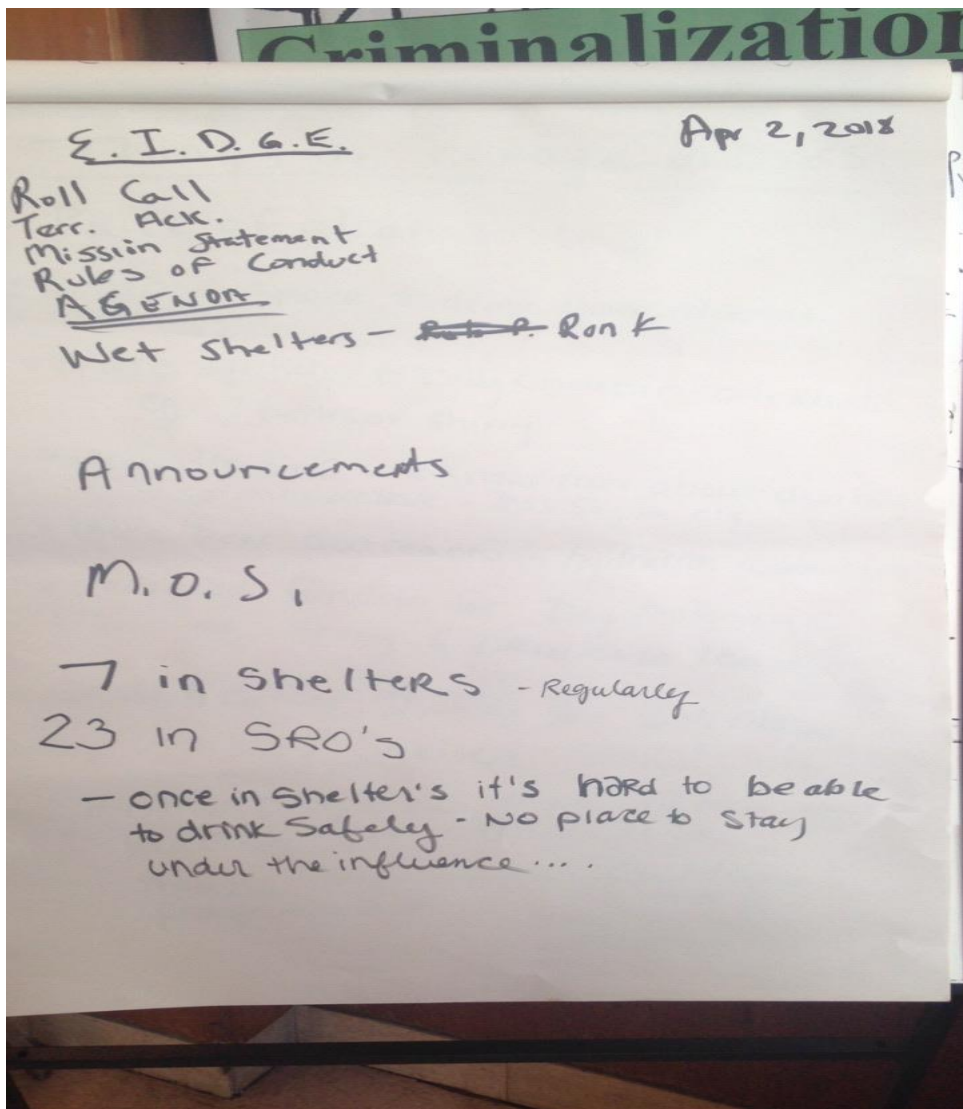 Criminalization
E.I.D.G.E.
Apr 2, 2018
Roll Call
Terr. Ack.
Mission Statement
Rules of Conduct
AGENDA
Wet Shelters - Ron K
Announcements
M.O.S.
7 in shelteRS - Regularly
23 in SRO's
- once in shelter's it's haRd to be able
to drink safely - No place to stay
under the influence....